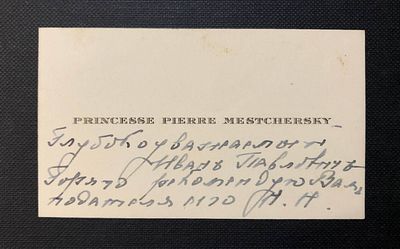 PRINCESSE PIERRE MESTCHERSKY
Глубокоуважаемый
Иванъ Павловичъ
Горячо рекомендую Вамъ
подателя сего